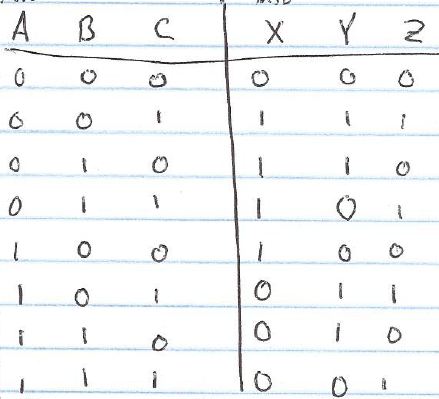 A B C X Y Z
0 0 0 0 0 0
0 0 1 1 1 1
0 1 0 1 1 0
0 1 1 1 0 1
1 0 0 1 0 0
1 0 1 0 1 1
1 1 0 0 1 0
1 1 1 0 0 1